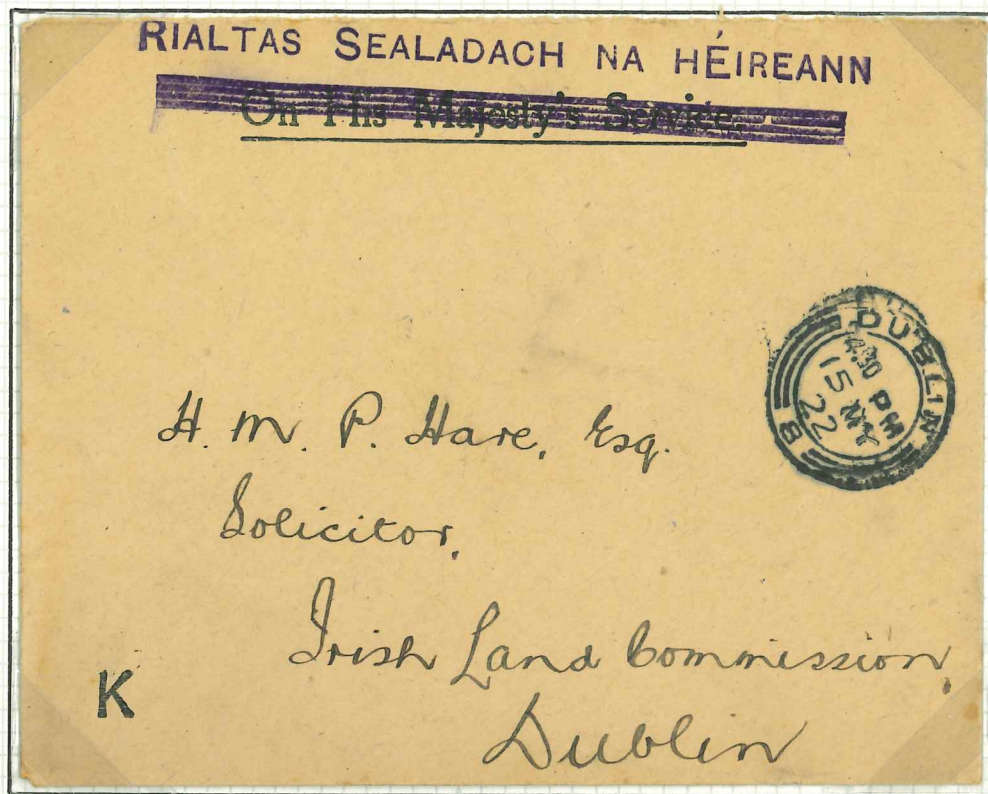 RIALTAS SEALADACH NA HÉIREANN
On His Majesty's Service.
DUBLIN
4.30 PM
15 MY
22
8
H. M. P. Hare, Esq.
Solicitor,
Irish Land Commission,
Dublin
K